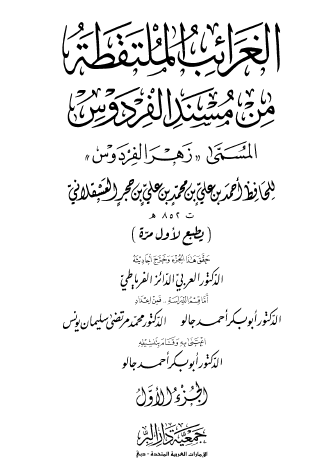 الغرائب الملتقطة
من مسند الفردوس
المسمى «زهر الفردوس»
للحافظ أحمد بن علي بن محمد بن علي بن حجر العسقلاني
ت ٨٥٢ هـ
( يطبع لأول مرة )
حقق هذا الجزء وخرج أحاديثه
الدكتور العربي الدائز الفرياطي
أما قسم الدراسة .. فمن إعداد
الدكتور أبو بكر أحمد جالو الدكتور محمد مرتضى سليمان يونس
اعتنى به وقام بتنسيقه
الدكتور أبو بكر أحمد جالو
الجزء الأول
جمعية دار البر
الإمارات العربية المتحدة - دبي